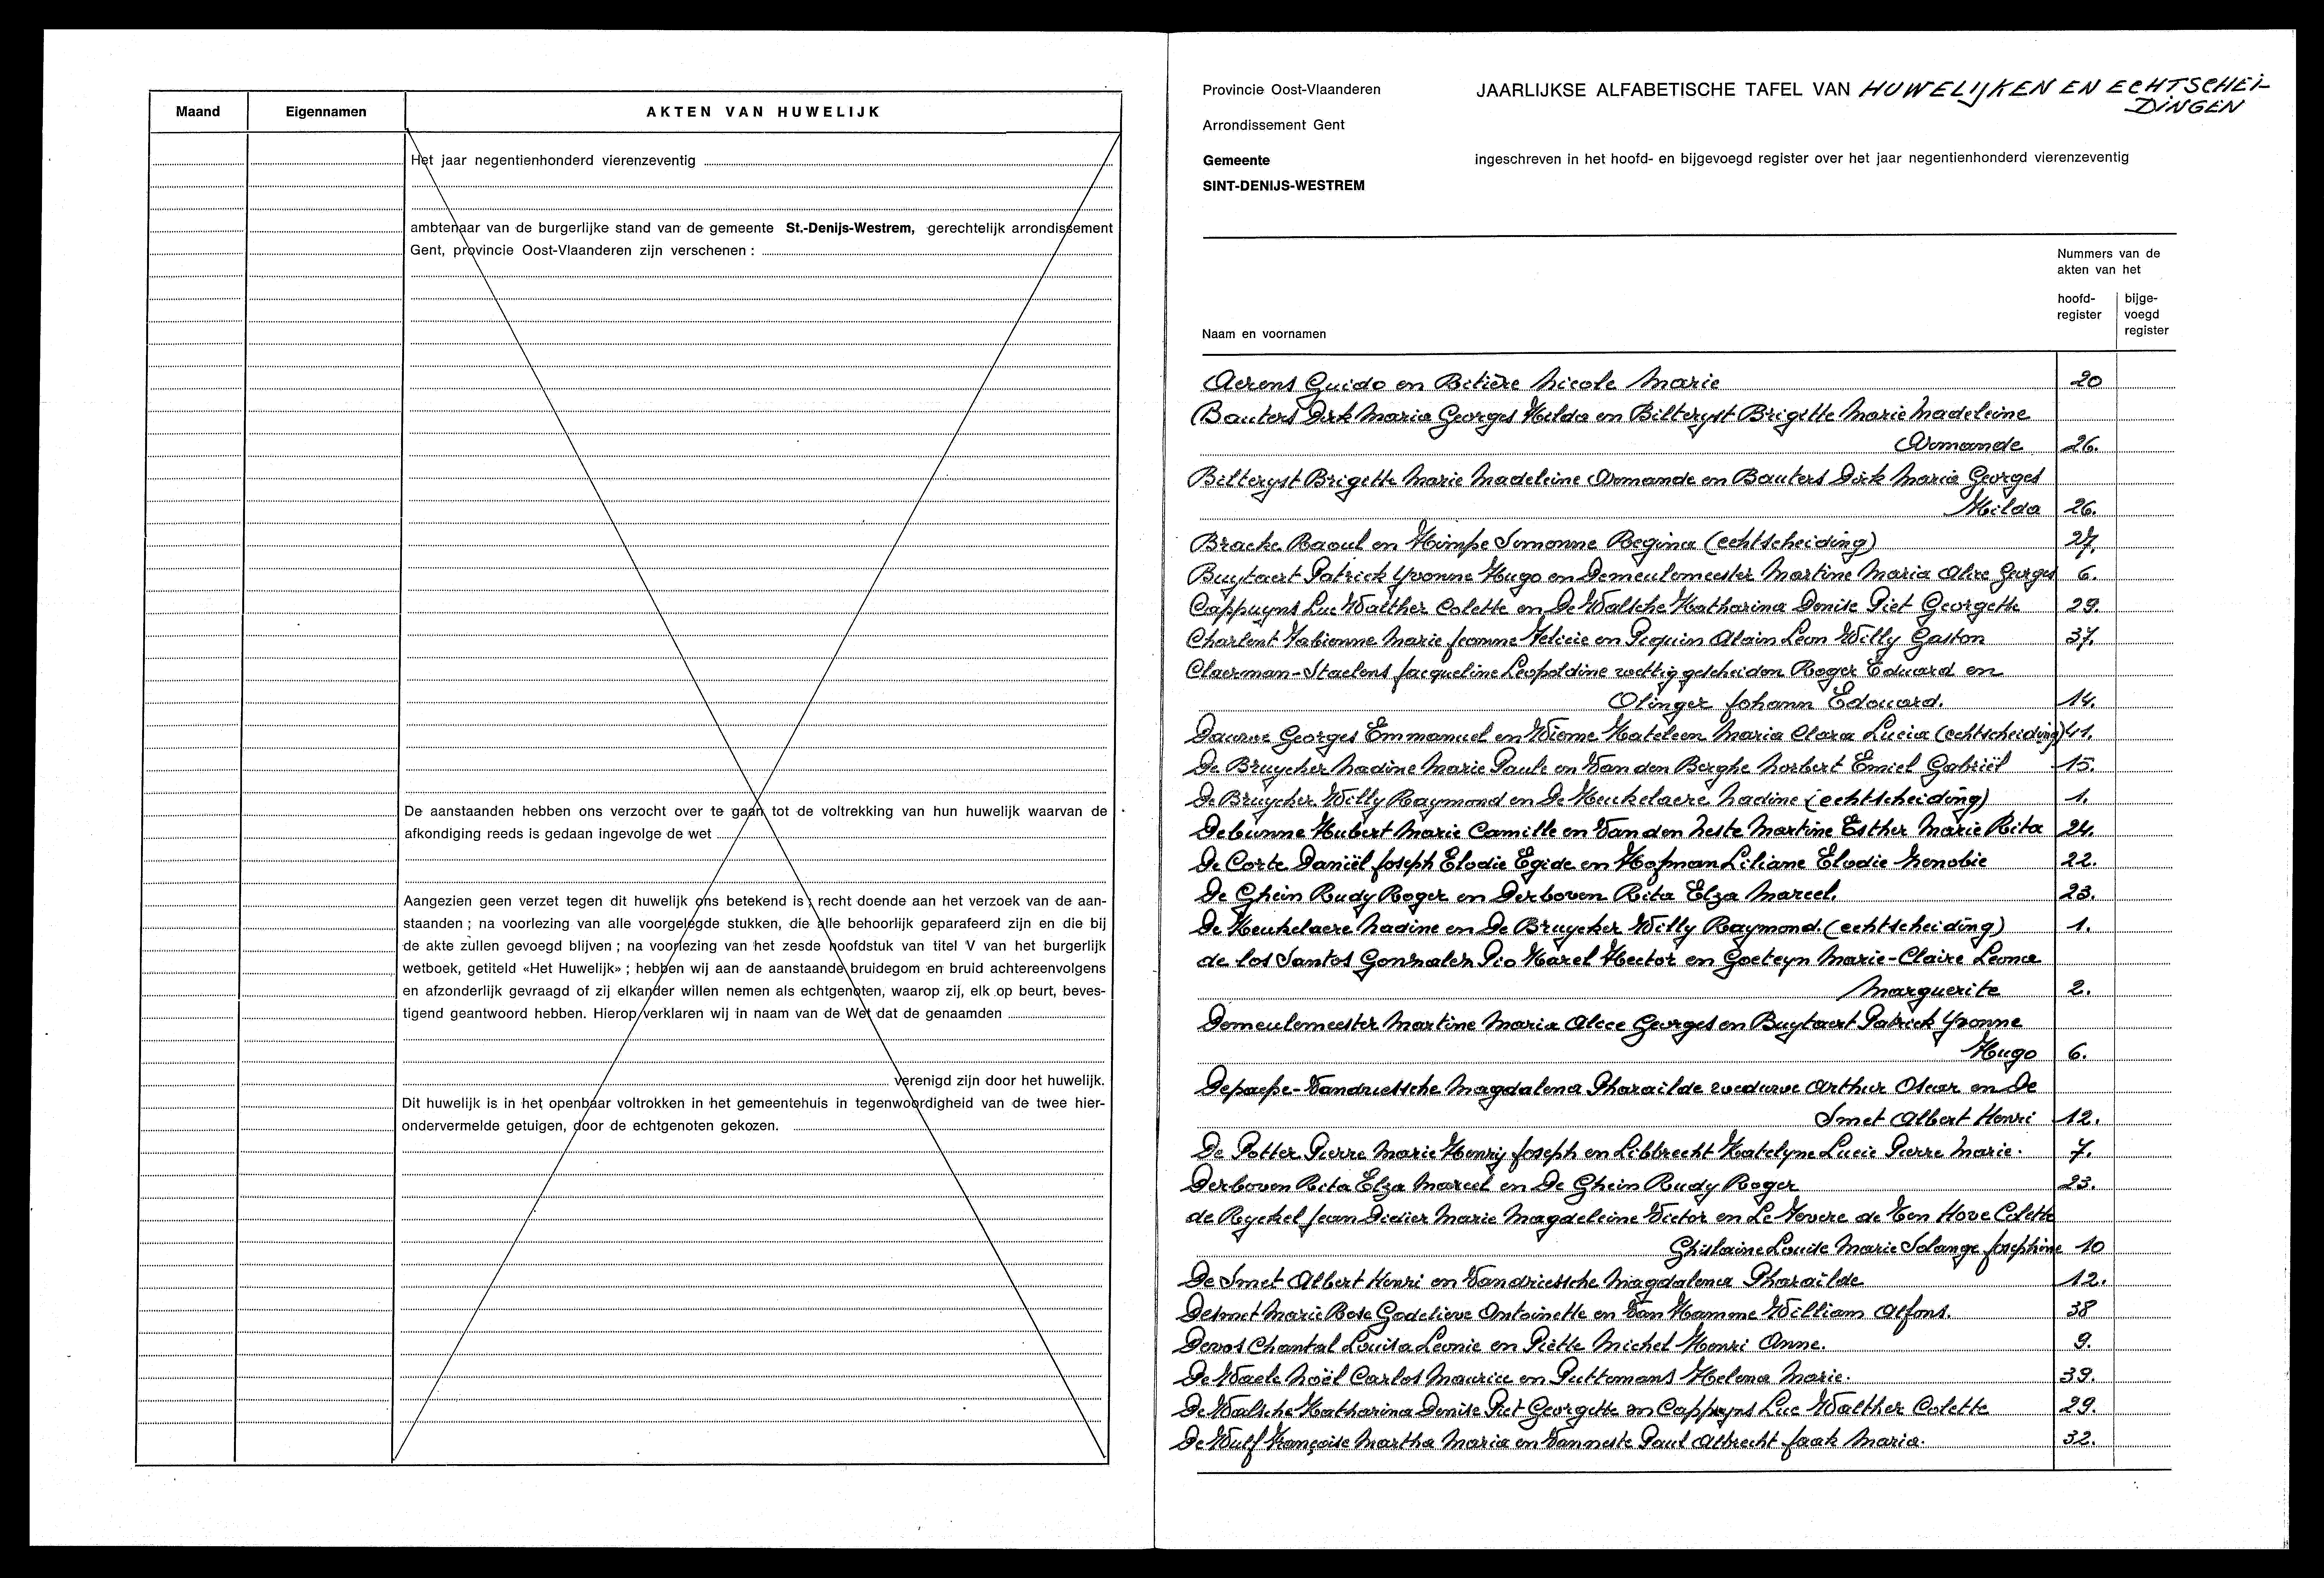 Maand Eigennamen AKTEN VAN HUWELIJK
Het jaar negentienhonderd vierenzeventig
ambtenaar van de burgerlijke stand van de gemeente St.-Denijs-Westrem, gerechtelijk arrondissement
Gent, provincie Oost-Vlaanderen zijn verschenen :
De aanstaanden hebben ons verzocht over te gaan tot de voltrekking van hun huwelijk waarvan de
afkondiging reeds is gedaan ingevolge de wet
Aangezien geen verzet tegen dit huwelijk ons betekend is, recht doende aan het verzoek van de aan-
staanden ; na voorlezing van alle voorgelegde stukken, die alle behoorlijk geparafeerd zijn en die bij
de akte zullen gevoegd blijven ; na voorlezing van het zesde hoofdstuk van titel V van het burgerlijk
wetboek, getiteld «Het Huwelijk» ; hebben wij aan de aanstaande bruidegom en bruid achtereenvolgens
en afzonderlijk gevraagd of zij elkander willen nemen als echtgenoten, waarop zij, elk op beurt, beves-
tigend geantwoord hebben. Hierop verklaren wij in naam van de Wet dat de genaamden
verenigd zijn door het huwelijk.
Dit huwelijk is in het openbaar voltrokken in het gemeentehuis in tegenwoordigheid van de twee hier-
ondervermelde getuigen, door de echtgenoten gekozen.
Provincie Oost-Vlaanderen
JAARLIJKSE ALFABETISCHE TAFEL VAN HUWELIJKEN EN ECHTSCHEI-
DINGEN
Arrondissement Gent
Gemeente
SINT-DENIJS-WESTREM
ingeschreven in het hoofd- en bijgevoegd register over het jaar negentienhonderd vierenzeventig
Nummers van de
akten van het
hoofd-
register
bijge-
voegd
register
Naam en voornamen
Aerens Guido en Bitière Nicole Marie 20
Bauters Dirk Maria Georges Hilda en Bilteryst Brigette Marie Madeleine
Armande 26.
Bilteryst Brigette Marie Madeleine Armande en Bauters Dirk Maria Georges
Hilda 26.
Bracke Raoul en Himpe Simonne Regina (echtscheiding) 27.
Buytaert Patrick Yvonne Hugo en Demeulemeester Martine Maria Alice Georges 6.
Cappuyns Luc Walther Colette en De Walsche Katharina Denise Piet Georgette 29.
Charlent Fabienne Marie Jeanne Felicie en Picquin Alain Leon Willy Gaston 37.
Claerman-Staelens Jacqueline Leopoldine wettig gescheiden Roger Eduard en
Olinger Johann Edouard. 14.
Dauwe Georges Emmanuel en Wieme Kateleen Maria Clara Lucia (echtscheiding) 41.
De Bruycker Nadine Marie Paule en Van den Berghe Norbert Emiel Gabriël 15.
De Bruycker Willy Raymond en De Keukelaere Nadine (echtscheiding) 1.
Debunne Hubert Marie Camille en Van den Neste Martine Esther Marie Rita 24.
De Corte Daniël Joseph Elodie Egide en Hofman Liliane Elodie Zenobie 22.
De Ghein Rudy Roger en Derboven Rita Elza Marcel. 23.
De Keukelaere Nadine en De Bruycker Willy Raymond. (echtscheiding) 1.
de los Santos Gonzalez Pio Karel Hector en Goeteyn Marie-Claire Leona
Marguerite 2.
Demeulemeester Martine Maria Alice Georges en Buytaert Patrick Yvonne
Hugo 6.
Depaepe-Vandriessche Magdalena Pharaïlde weduwe Arthur Oscar en De
Smet Albert Henri 12.
De Potter Pierre Marie Henry Joseph en Libbrecht Katelyne Lucie Pierre Marie. 7.
Derboven Rita Elza Marcel en De Ghein Rudy Roger 23.
de Ryckel Jean Didier Marie Magdeleine Victor en Le Fevere de Ten Hove Colette
Ghislaine Louise Marie Solange Josephine 10
De Smet Albert Henri en Vandriessche Magdalena Pharaïlde 12.
Desmet Marie Rose Godelieve Antoinette en Van Hamme William Alfons. 38
Devos Chantal Louisa Leonie en Piette Michel Henri Anne. 9.
De Waele Noël Carlos Maurice en Puttemans Helena Marie. 39.
De Walsche Katharina Denise Piet Georgette en Cappuyns Luc Walther Colette 29.
De Wulf Françoise Martha Maria en Vanneste Paul Albrecht Jaak Maria. 32.